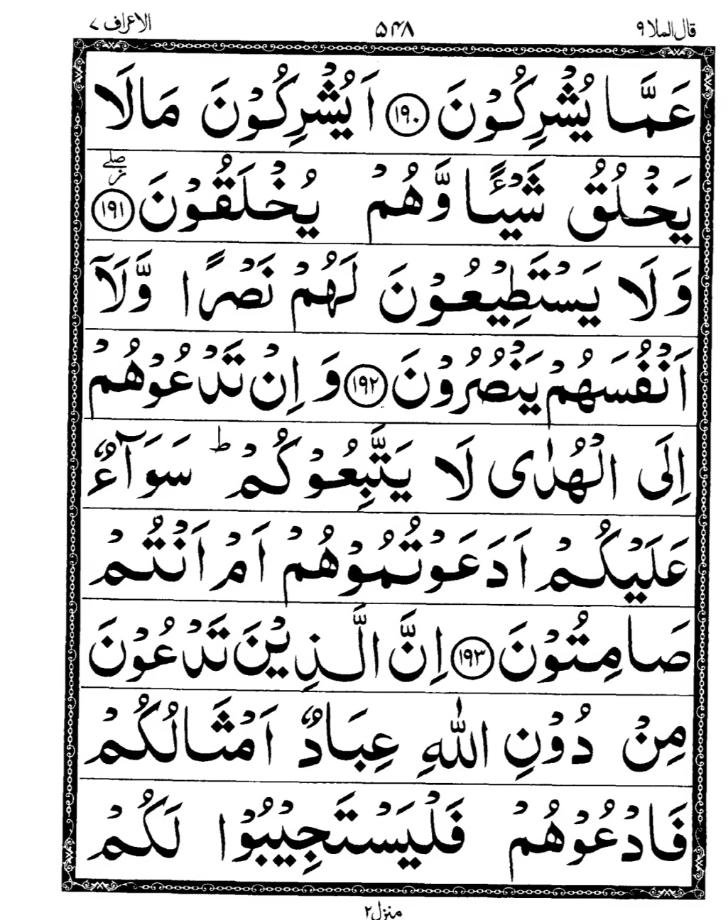 قال الملا ۹ ۵۴۸ الاعراف ۷
عَمَّا يُشْرِكُوْنَ ۝۱۹۰ اَيُشْرِكُوْنَ مَالَا
يَخْلُقُ شَيْـًٔا وَّهُمْ يُخْلَقُوْنَ ۝۱۹۱ۖ
وَلَا يَسْتَطِيْعُوْنَ لَهُمْ نَصْرًا وَّلَاۤ
اَنْفُسَهُمْ يَنْصُرُوْنَ ۝۱۹۲ وَاِنْ تَدْعُوْهُمْ
اِلَى الْهُدٰى لَا يَتَّبِعُوْكُمْ ؕ سَوَآءٌ
عَلَيْكُمْ اَدَعَوْتُمُوْهُمْ اَمْ اَنْتُمْ
صَامِتُوْنَ ۝۱۹۳ اِنَّ الَّذِيْنَ تَدْعُوْنَ
مِنْ دُوْنِ اللّٰهِ عِبَادٌ اَمْثَالُكُمْ
فَادْعُوْهُمْ فَلْيَسْتَجِيْبُوْا لَكُمْ
منزل ۲